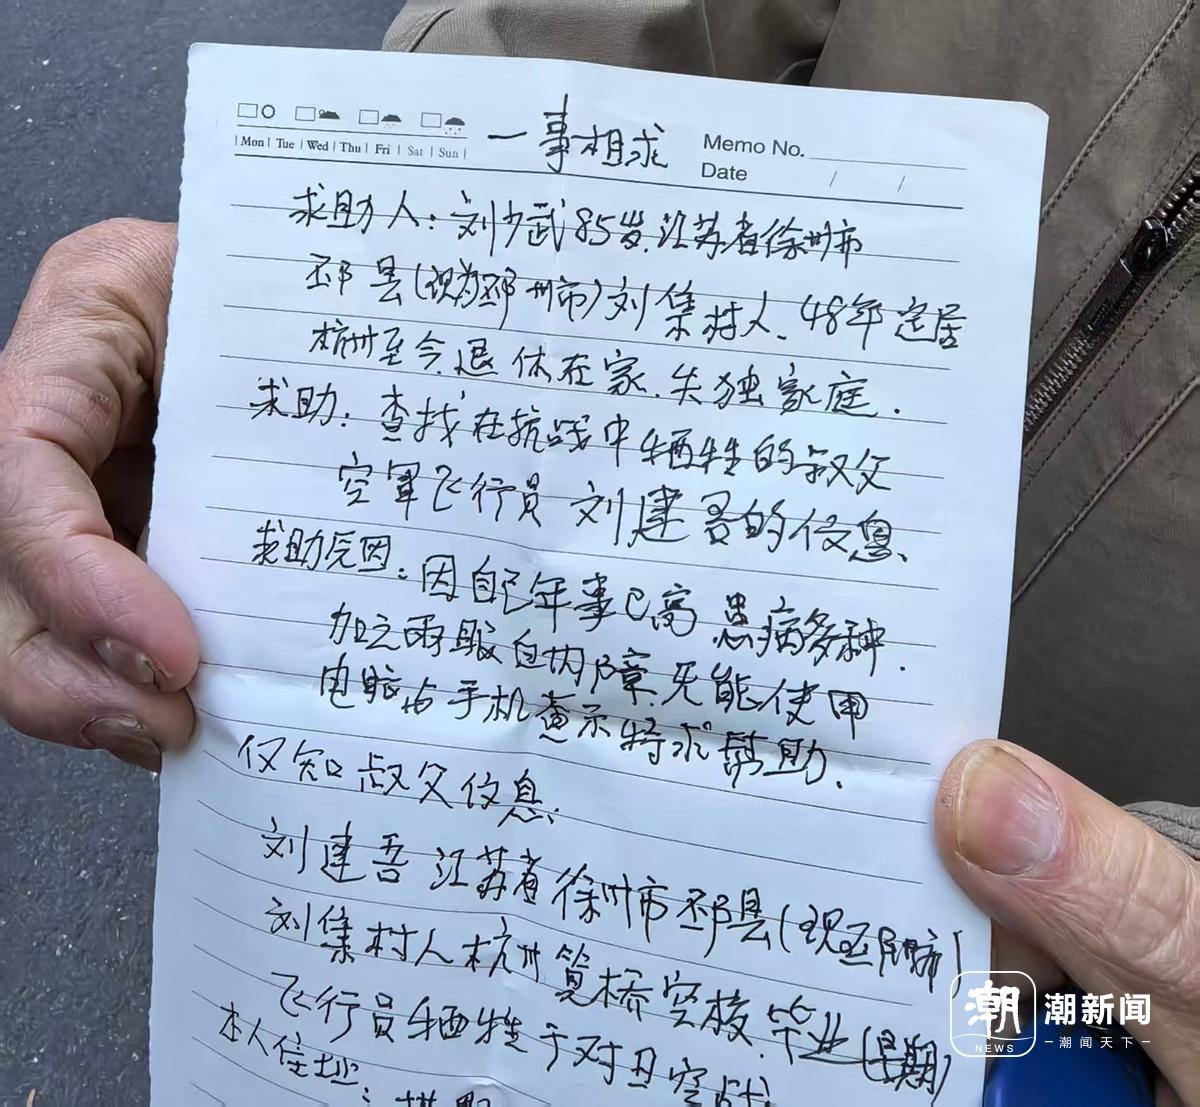 一事相求
Memo No.
Date / /
Mon Tue Wed Thu Fri Sat Sun
求助人：刘少武85岁.江苏省徐州市
邳县(现为邳州市)刘集村人.48年定居
杭州至今.退休在家.失独家庭.
求助：查找在抗战中牺牲的叔父
空军飞行员刘建吾的信息、
求助原因：因自己年事已高 患病多种.
加之两眼白内障.无能使用
电脑与手机查示特求帮助.
仅知叔父信息：
刘建吾 江苏省徐州市邳县(现邳州市)
刘集村人杭州笕桥空校.毕业(早期)
飞行员牺牲于对日空战
本人住址：
潮
NEWS
潮新闻
潮闻天下